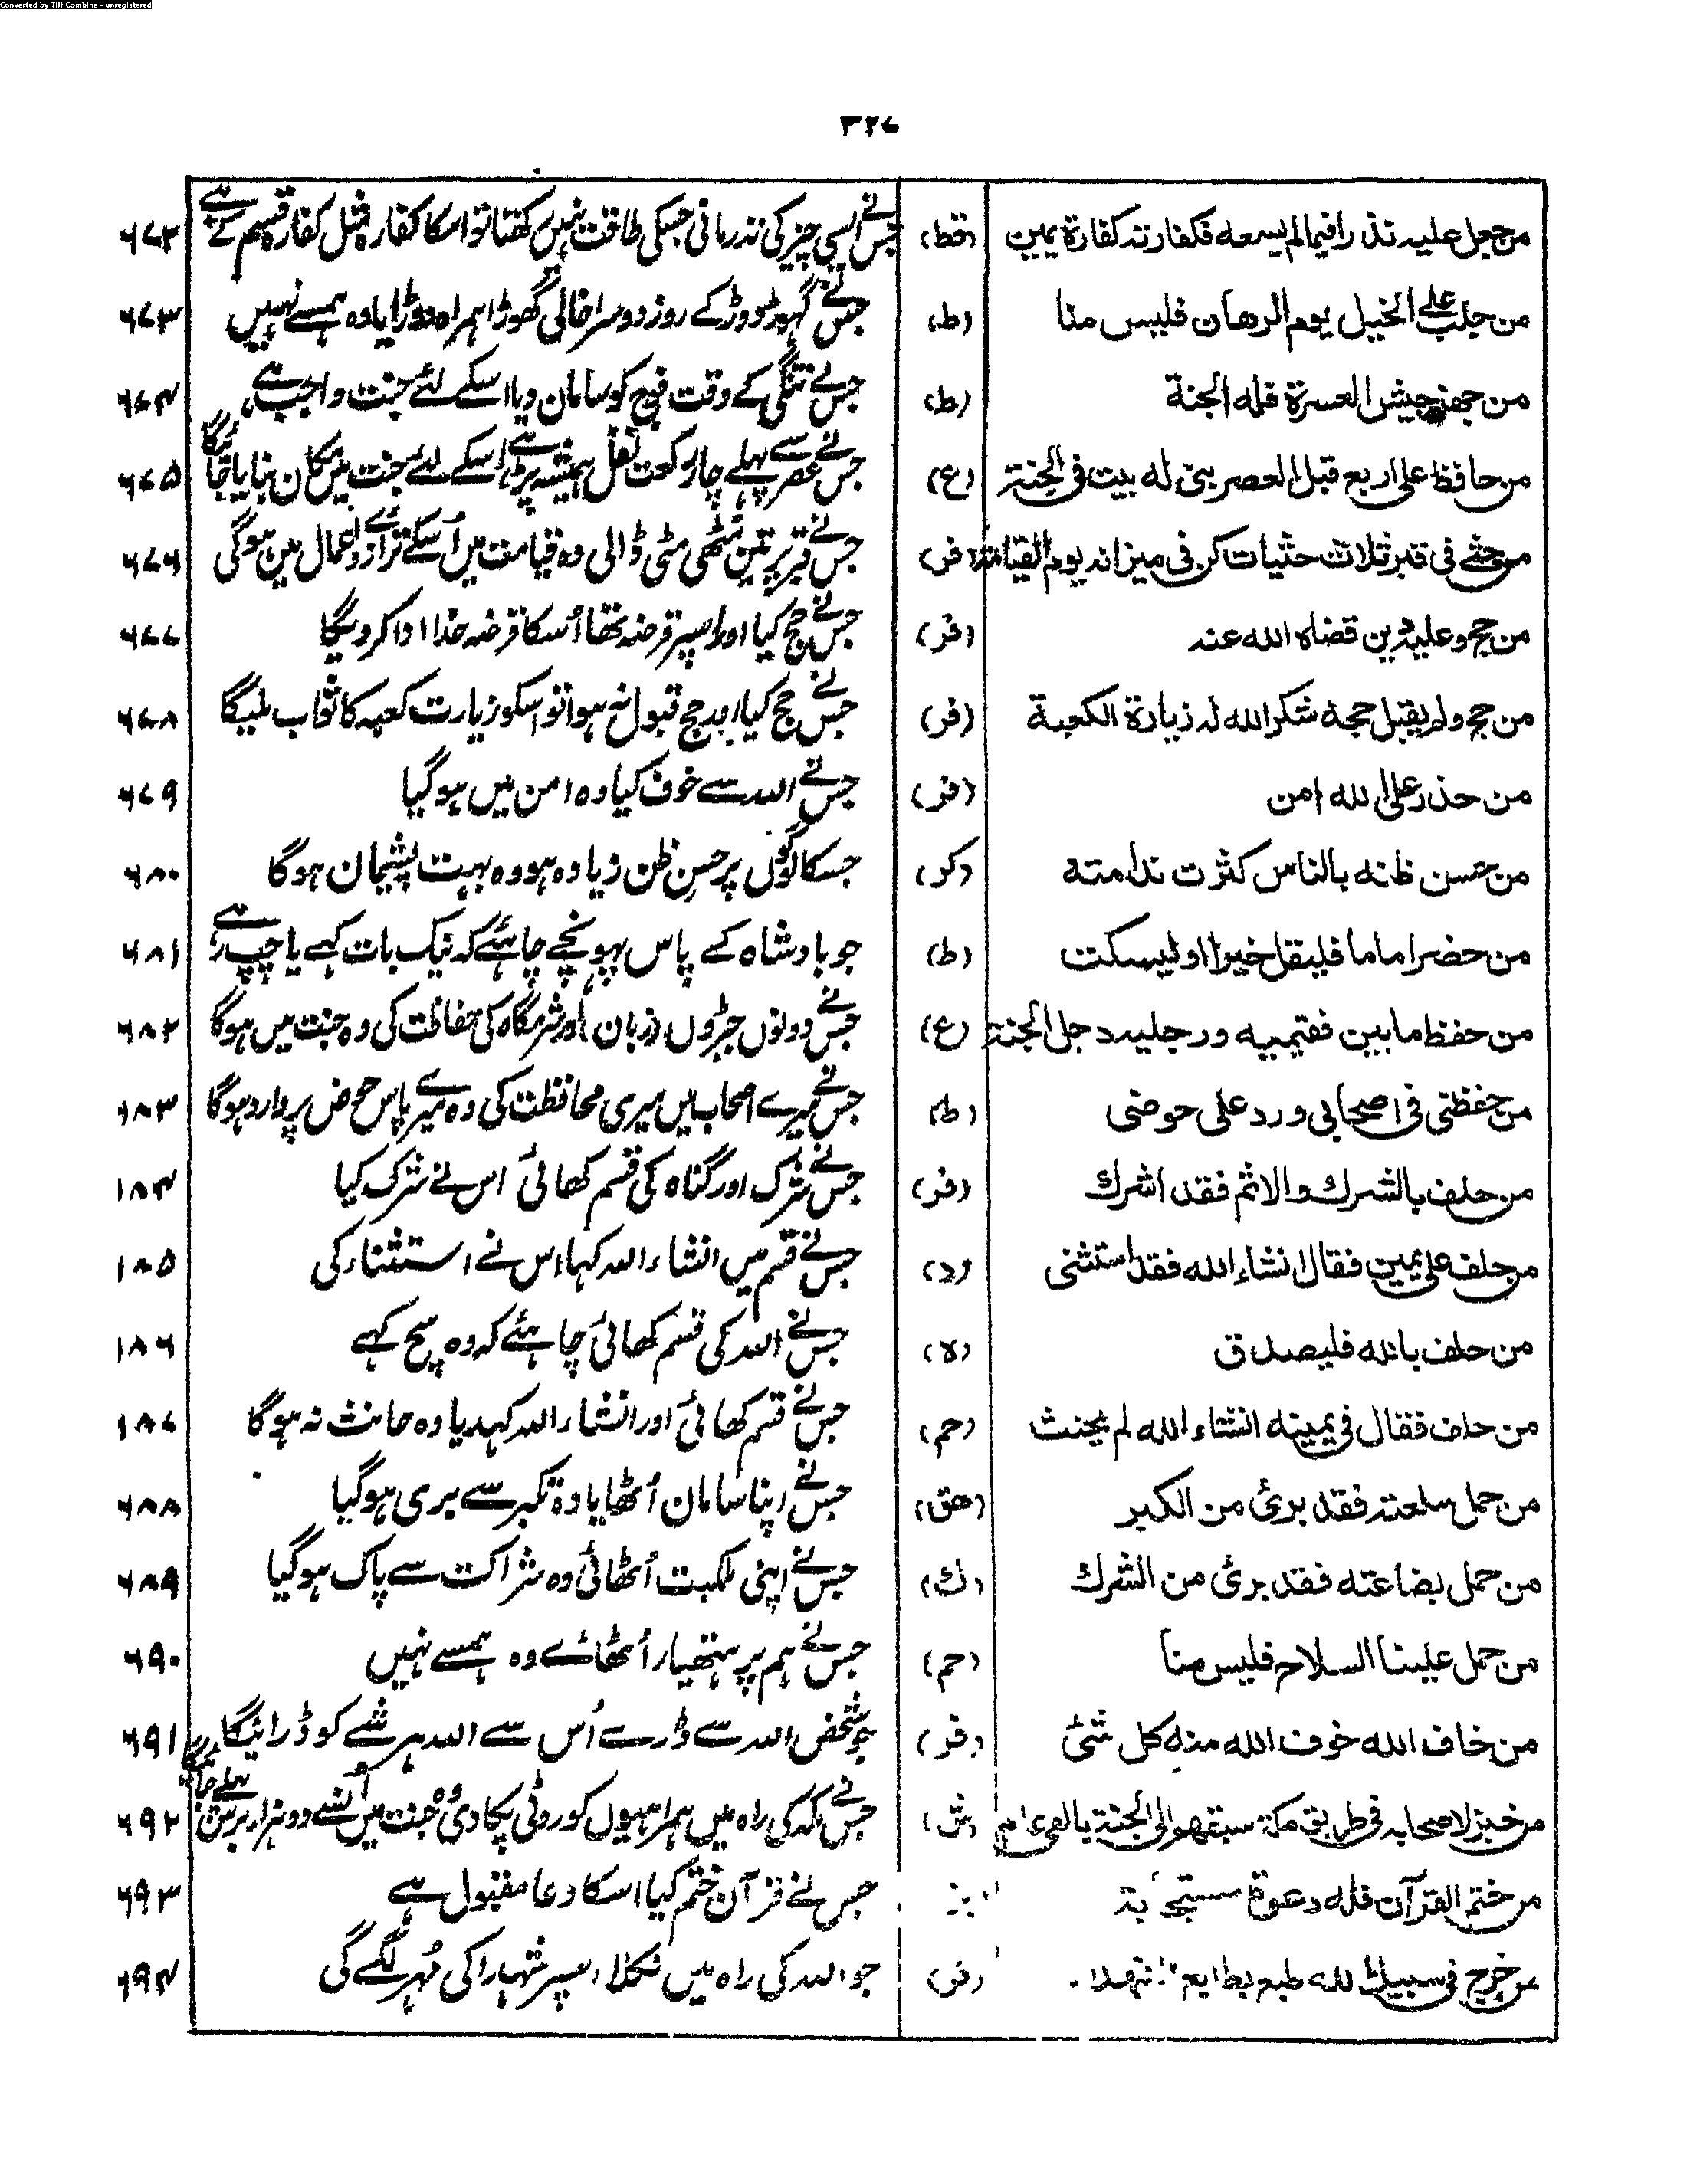 Converted by Tiff Combine - unregistered
۳۲۷
من جعل علیہ نذرا فیما لم یسعہ فکفارتہ کفارة یمین (قط) جس نے ایسی چیز کی نذر مانی جسکی طاقت نہیں رکھتا تو اسکا کفارہ مثل کفارہ قسم کے ہے ۶۷۲
من جلب علی الخیل یوم الرھان فلیس منا (ط) جس نے گہوڑ دوڑ کے روز دوسرا خالی گھوڑا ہمراہ دوڑایا وہ ہمسے نہیں ۶۷۳
من جھز جیش العسرة فلہ الجنة (ط) جس نے تنگی کے وقت فوج کو سامان دیا اسکے لئے جنت واجب ہے ۶۷۴
من حافظ علی اربع قبل العصر بنی لہ بیت فی الجنة (ع) جس نے عصر سے پہلے چار رکعت نفل ہمیشہ پڑہے اسکے لئے جنت میں مکان بنایا جائیگا ۶۷۵
من حثے فی قبر ثلاث حثیات کن فی میزانہ یوم القیامة (فر) جس نے قبر پر تین مٹھی مٹی ڈالی وہ قیامت میں اُسکے ترازوئے اعمال میں ہوگی ۶۷۶
من حج و علیہ دین قضاہ اللہ عنہ (فر) جس نے حج کیا اور اسپر قرضہ تھا اُسکا قرضہ خدا ادا کردیگا ۶۷۷
من حج ولم یقبل حجہ شکر اللہ لہ زیارة الکعبة (فر) جس نے حج کیا اور حج قبول نہ ہوا تو اسکو زیارت کعبہ کا ثواب ملیگا ۶۷۸
من حذر علی اللہ امن (فر) جس نے اللہ سے خوف کیا وہ امن میں ہوگیا ۶۷۹
من حسن ظنہ بالناس کثرت ندامتہ (کر) جسکا لوگوں پر حسن ظن زیادہ ہو وہ بہت پشیمان ہوگا ۶۸۰
من حضر اماما فلیقل خیرا او لیسکت (ط) جو بادشاہ کے پاس پہونچے چاہئے کہ نیک بات کہے یا چپ رہے ۶۸۱
من حفظ مابین فقیمیہ و رجلیہ دخل الجنة (ع) جس نے دونوں جبڑوں زبان اور شرمگاہ کی حفاظت کی وہ جنت میں ہوگا ۶۸۲
من حفظنی فی اصحابی ورد علی حوضی (ط) جس نے میرے اصحاب میں میری محافظت کی وہ میرے پاس حوض پر وارد ہوگا ۶۸۳
من حلف بالشرك والاثم فقد اشرك (فر) جس نے شرک اور گناہ کی قسم کھائی اس نے شرک کیا ۶۸۴
من حلف علی یمین فقال انشاء اللہ فقد استثنی (د) جس نے قسم میں انشاء اللہ کہا اس نے استثناء کی ۶۸۵
من حلف باللہ فلیصدق (ہ) جس نے اللہ کی قسم کھائی چاہئے کہ وہ سچ کہے ۶۸۶
من حلف فقال فی یمینہ انشاء اللہ لم یحنث (حم) جس نے قسم کھائی اور انشاء اللہ کہدیا وہ حانث نہ ہوگا ۶۸۷
من حمل سلعتہ فقد برئ من الکبر (ھق) جس نے اپنا سامان اُٹھایا وہ تکبر سے بری ہوگیا ۶۸۸
من حمل بضاعتہ فقد برئ من الشرك (ك) جس نے اپنی ملکیت اُٹھائی وہ شراکت سے پاک ہوگیا ۶۸۹
من حمل علینا السلاح فلیس منا (حم) جس نے ہم پر ہتھیار اُٹھائے وہ ہمسے نہیں ۶۹۰
من خاف اللہ خوف اللہ منہ کل شئ (فر) جو شخص اللہ سے ڈارے اُس سے اللہ ہر شے کو ڈرائیگا ۶۹۱
من خبز لاصحابہ فی طریق مکة سبقھم الی الجنة بالفی عام (ش) جس نے مکہ کی راہ میں ہمراہیوں کو روٹی پکا دی وہ جنت میں اُنسے دو ہزار برس پہلے جائیگا ۶۹۲
من ختم القرآن فلہ دعوة مستجابة جس نے قرآن ختم کیا اسکا دعا مقبول ہے ۶۹۳
من خرج فی سبیل اللہ طبع بطابع الشہداء (فر) جو اللہ کی راہ میں نکلا اسپر شہدا کی مُہر لگے گی ۶۹۴